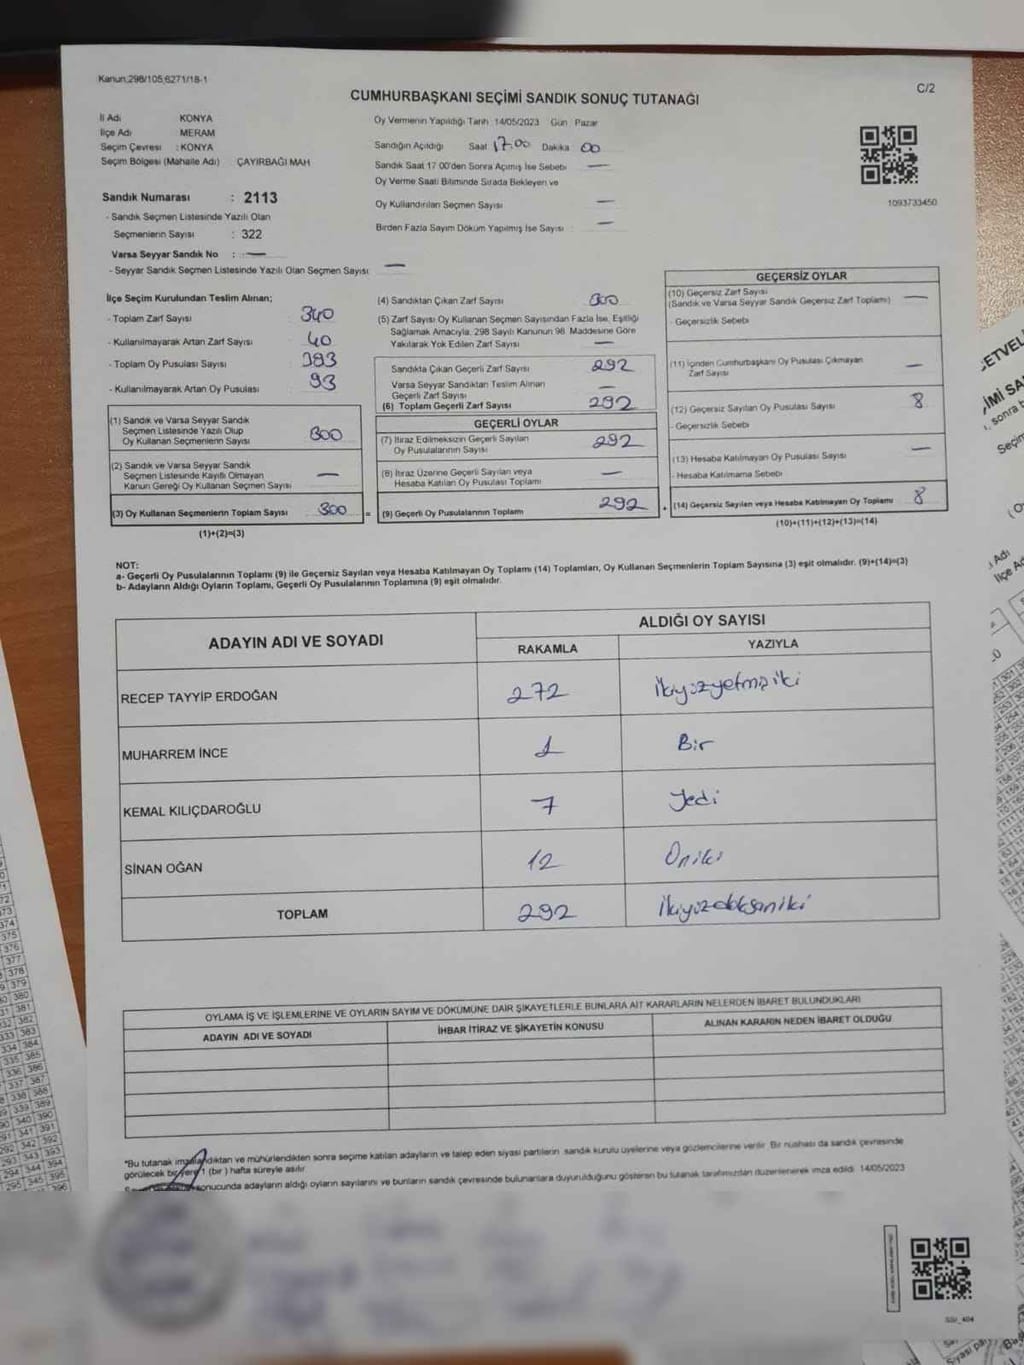 Kanun;298/105,6271/18-1
C/2
CUMHURBAŞKANI SEÇİMİ SANDIK SONUÇ TUTANAĞI
İl Adı KONYA
İlçe Adı MERAM
Seçim Çevresi : KONYA
Seçim Bölgesi (Mahalle Adı) : ÇAYIRBAĞI MAH
Sandık Numarası : 2113
- Sandık Seçmen Listesinde Yazılı Olan
Seçmenlerin Sayısı : 322
Varsa Seyyar Sandık No : —
- Seyyar Sandık Seçmen Listesinde Yazılı Olan Seçmen Sayısı —
Oy Vermenin Yapıldığı Tarih :14/05/2023 Gün : Pazar
Sandığın Açıldığı Saat 17.00 Dakika 00
Sandık Saat 17 00'den Sonra Açımış İse Sebebi —
Oy Verme Saati Bitiminde Sırada Bekleyen ve
Oy Kullandırılan Seçmen Sayısı —
Birden Fazla Sayım Döküm Yapılmış İse Sayısı : —
1093733450
İlçe Seçim Kurulundan Teslim Alınan;
- Toplam Zarf Sayısı 340
- Kullanılmayarak Artan Zarf Sayısı 40
- Toplam Oy Pusulası Sayısı 393
- Kullanılmayarak Artan Oy Pusulası 93
(1) Sandık ve Varsa Seyyar Sandık
Seçmen Listesinde Yazılı Olup
Oy Kullanan Seçmenlerin Sayısı 300
(2) Sandık ve Varsa Seyyar Sandık
Seçmen Listesinde Kayıtlı Olmayan
Kanun Gereği Oy Kullanan Seçmen Sayısı —
(3) Oy Kullanan Seçmenlerin Toplam Sayısı 300 =
(1)+(2)=(3)
(4) Sandıktan Çıkan Zarf Sayısı 300
(5) Zarf Sayısı Oy Kullanan Seçmen Sayısından Fazla İse, Eşitliği
Sağlamak Amacıyla, 298 Sayılı Kanunun 98. Maddesine Göre
Yakılarak Yok Edilen Zarf Sayısı —
Sandıkta Çıkan Geçerli Zarf Sayısı 292
Varsa Seyyar Sandıktan Teslim Alınan
Geçerli Zarf Sayısı —
(6) Toplam Geçerli Zarf Sayısı 292
GEÇERLİ OYLAR
(7) İtiraz Edilmeksizin Geçerli Sayılan
Oy Pusulalarının Sayısı 292
(8) İtiraz Üzerine Geçerli Sayılan veya
Hesaba Katılan Oy Pusulası Toplamı —
(9) Geçerli Oy Pusulalarının Toplamı 292 +
GEÇERSİZ OYLAR
(10) Geçersiz Zarf Sayısı
(Sandık ve Varsa Seyyar Sandık Geçersiz Zarf Toplamı) —
- Geçersizlik Sebebi
(11) İçinden Cumhurbaşkanı Oy Pusulası Çıkmayan
Zarf Sayısı —
(12) Geçersiz Sayılan Oy Pusulası Sayısı 8
- Geçersizlik Sebebi
(13) Hesaba Katılmayan Oy Pusulası Sayısı —
- Hesaba Katılmama Sebebi
(14) Geçersiz Sayılan veya Hesaba Katılmayan Oy Toplamı 8
(10)+(11)+(12)+(13)=(14)
NOT:
a- Geçerli Oy Pusulalarının Toplamı (9) ile Geçersiz Sayılan veya Hesaba Katılmayan Oy Toplamı (14) Toplamları, Oy Kullanan Seçmenlerin Toplam Sayısına (3) eşit olmalıdır. (9)+(14)=(3)
b- Adayların Aldığı Oyların Toplamı, Geçerli Oy Pusulalarının Toplamına (9) eşit olmalıdır.
ADAYIN ADI VE SOYADI ALDIĞI OY SAYISI
RAKAMLA YAZIYLA
RECEP TAYYİP ERDOĞAN 272 ikiyüzyetmişiki
MUHARREM İNCE 1 Bir
KEMAL KILIÇDAROĞLU 7 Yedi
SİNAN OĞAN 12 Oniki
TOPLAM 292 ikiyüzdoksaniki
OYLAMA İŞ VE İŞLEMLERİNE VE OYLARIN SAYIM VE DÖKÜMÜNE DAİR ŞİKAYETLERLE BUNLARA AİT KARARLARIN NELERDEN İBARET BULUNDUKLARI
ADAYIN ADI VE SOYADI İHBAR İTİRAZ VE ŞİKAYETİN KONUSU ALINAN KARARIN NEDEN İBARET OLDUĞU
*Bu tutanak imzalandıktan ve mühürlendikten sonra seçime katılan adayların ve talep eden siyasi partilerin sandık kurulu üyelerine veya gözlemcilerine verilir. Bir nüshası da sandık çevresinde
görülecek bir yere 1 (bir) hafta süreyle asılır.
sonucunda adayların aldığı oyların sayılarını ve bunların sandık çevresinde bulunanlara duyurulduğunu gösteren bu tutanak tarafımızdan düzenlenerek imza edildi. 14/05/2023